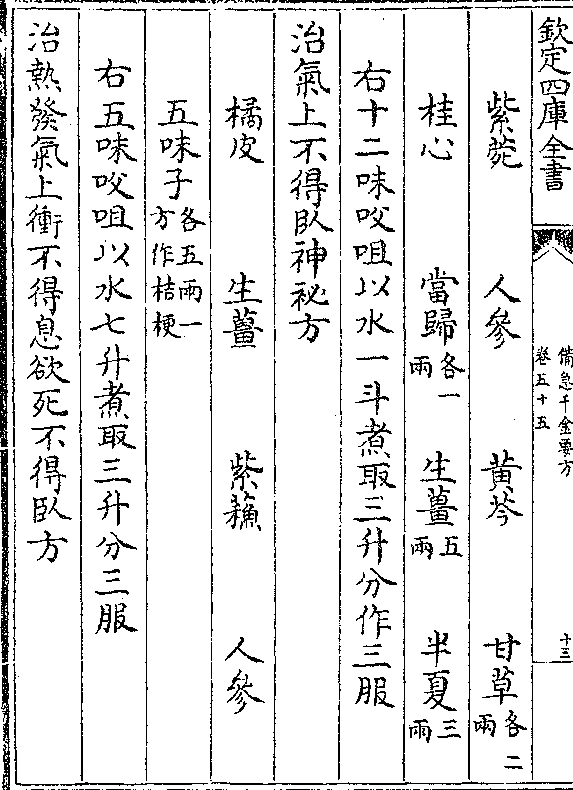 欽定四庫全書
備急千金要方
卷五十五
十三
紫菀 人參 黄芩 甘草各二兩
桂心 當歸各一兩 生薑五兩 半夏三兩
右十二味㕮咀以水一斗煮取三升分作三服
治氣上不得臥神祕方
橘皮 生薑 紫蘓 人參
五味子各五兩一方作桔梗
右五味㕮咀以水七升煮取三升分三服
治熱發氣上衝不得息欲死不得臥方